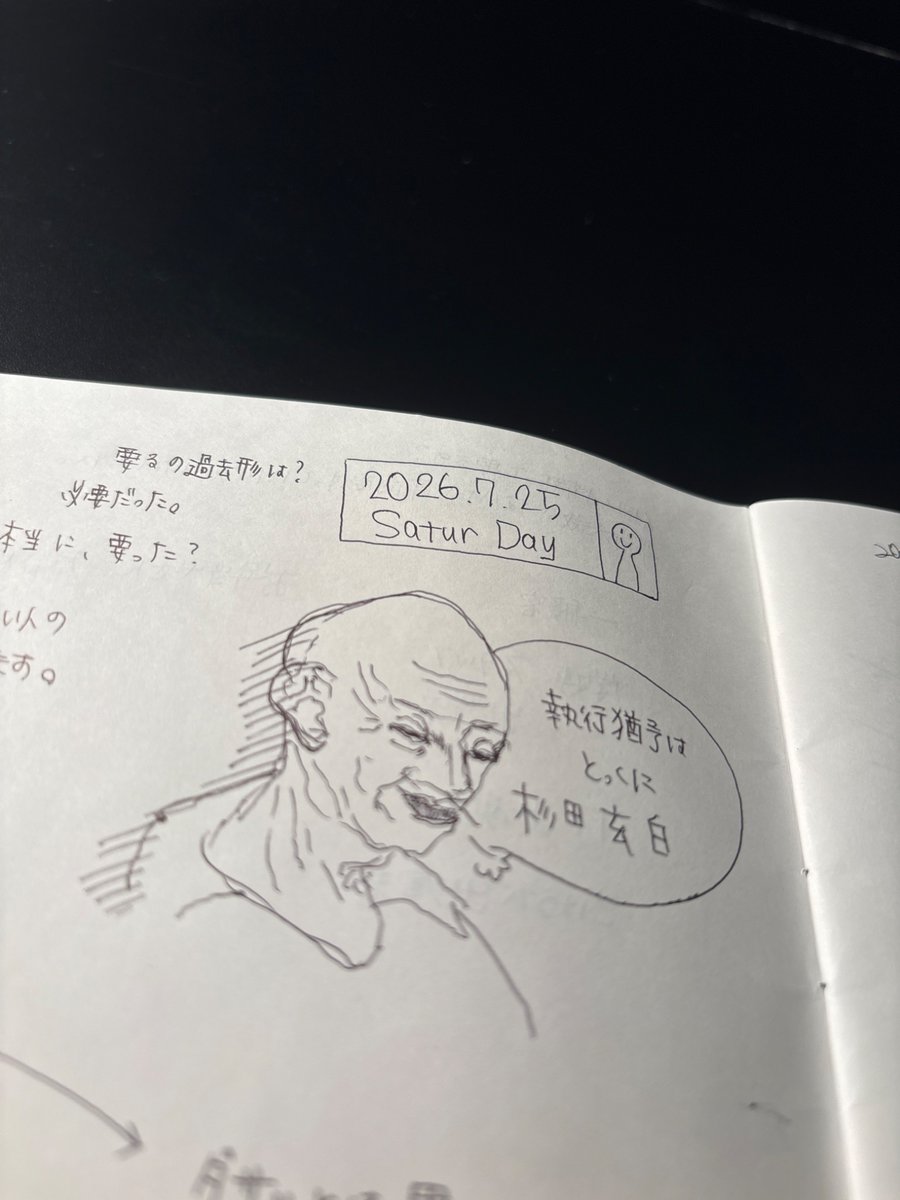 要るの過去形は?
必要だった。
本当に、要った?
い人の
ます。
2026.7.25
Satur Day
執行猶予は
とっくに
杉田玄白
20